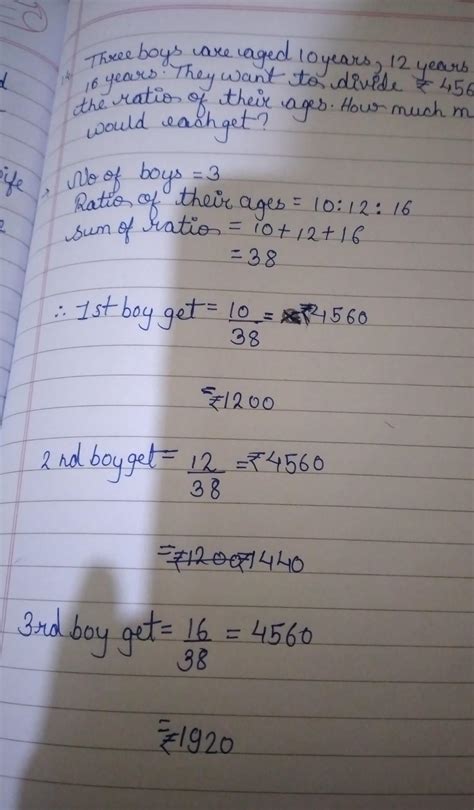 Three boys are aged 10 years, 12 years
16 years. They want to divide ₹ 456
the ratio of their ages. How much m
would each get?
No of boys = 3
Ratio of their ages = 10:12:16
Sum of ratio = 10+12+16
= 38
∴ 1st boy get = 10/38 = ₹4560
= ₹1200
2nd boy get = 12/38 = ₹4560
= ₹1200 ₹1440
3rd boy get = 16/38 = 4560
= ₹1920